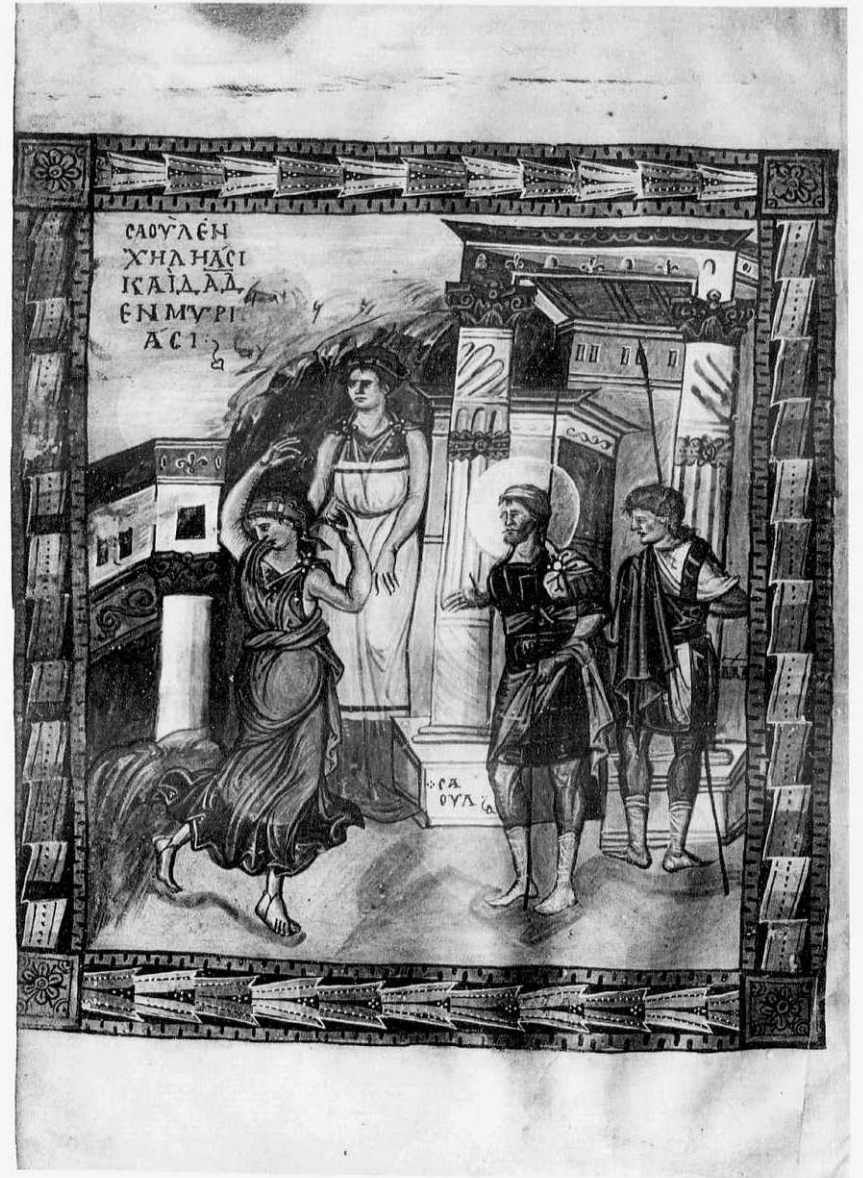 CΑΟῪΛ ΕΝ
ΧΗΛΗΆCΙ
ΚΑῚ ΔΑ̅Δ̅
ΕΝ ΜΥΡΙ
ΑCΙ
CΑ
ΟΥΛ